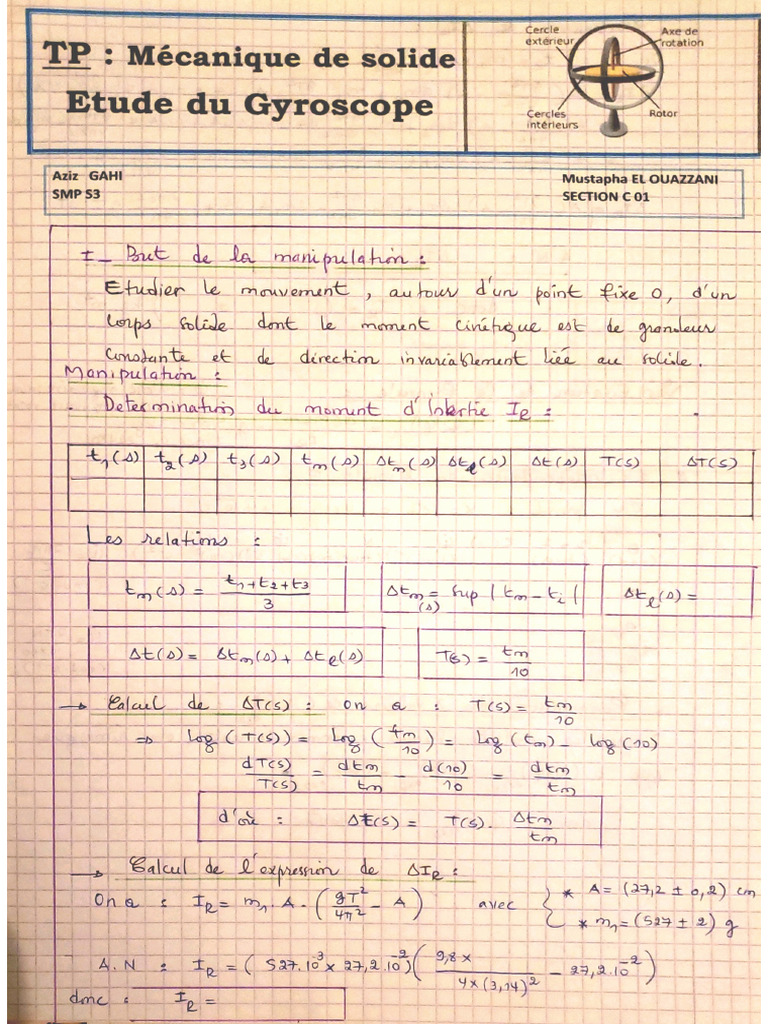 TP : Mécanique de solide
Etude du Gyroscope
Cercle
extérieur
Axe de
rotation
Cercles
intérieurs
Rotor
Aziz GAHI
SMP S3
Mustapha EL OUAZZANI
SECTION C 01
I_ But de la manipulation :
Etudier le mouvement, autour d'un point fixe O, d'un
corps solide dont le moment cinétique est de grandeur
constante et de direction invariablement liée au solide.
Manipulation :
. Determination du moment d'Inertie I_R :
t₁(s) t₂(s) t₃(s) t_m(s) Δt_m(s) Δt_l(s) Δt(s) T(s) ΔT(s)
Les relations :
t_m(s) = (t₁+t₂+t₃)/3
Δt_m(s) = sup | t_m - t_i |
Δt_l(s) =
Δt(s) = Δt_m(s) + Δt_l(s)
T(s) = t_m/10
→ Calcul de ΔT(s) : on a : T(s) = t_m/10
⇒ log(T(s)) = log(t_m/10) = log(t_m) - log(10)
dT(s)/T(s) = dt_m/t_m - d(10)/10 = dt_m/t_m
d'où : Δt(s) = T(s). Δt_m/t_m
→ Calcul de l'expression de ΔI_R :
On a : I_R = m₁.A.(gT²/4π² - A) avec { * A = (27,2 ± 0,2) cm
* m₁ = (527 ± 2) g
A.N : I_R = (527.10⁻³ × 27,2.10⁻²)(9,8×/4×(3,14)² - 27,2.10⁻²)
donc : I_R =